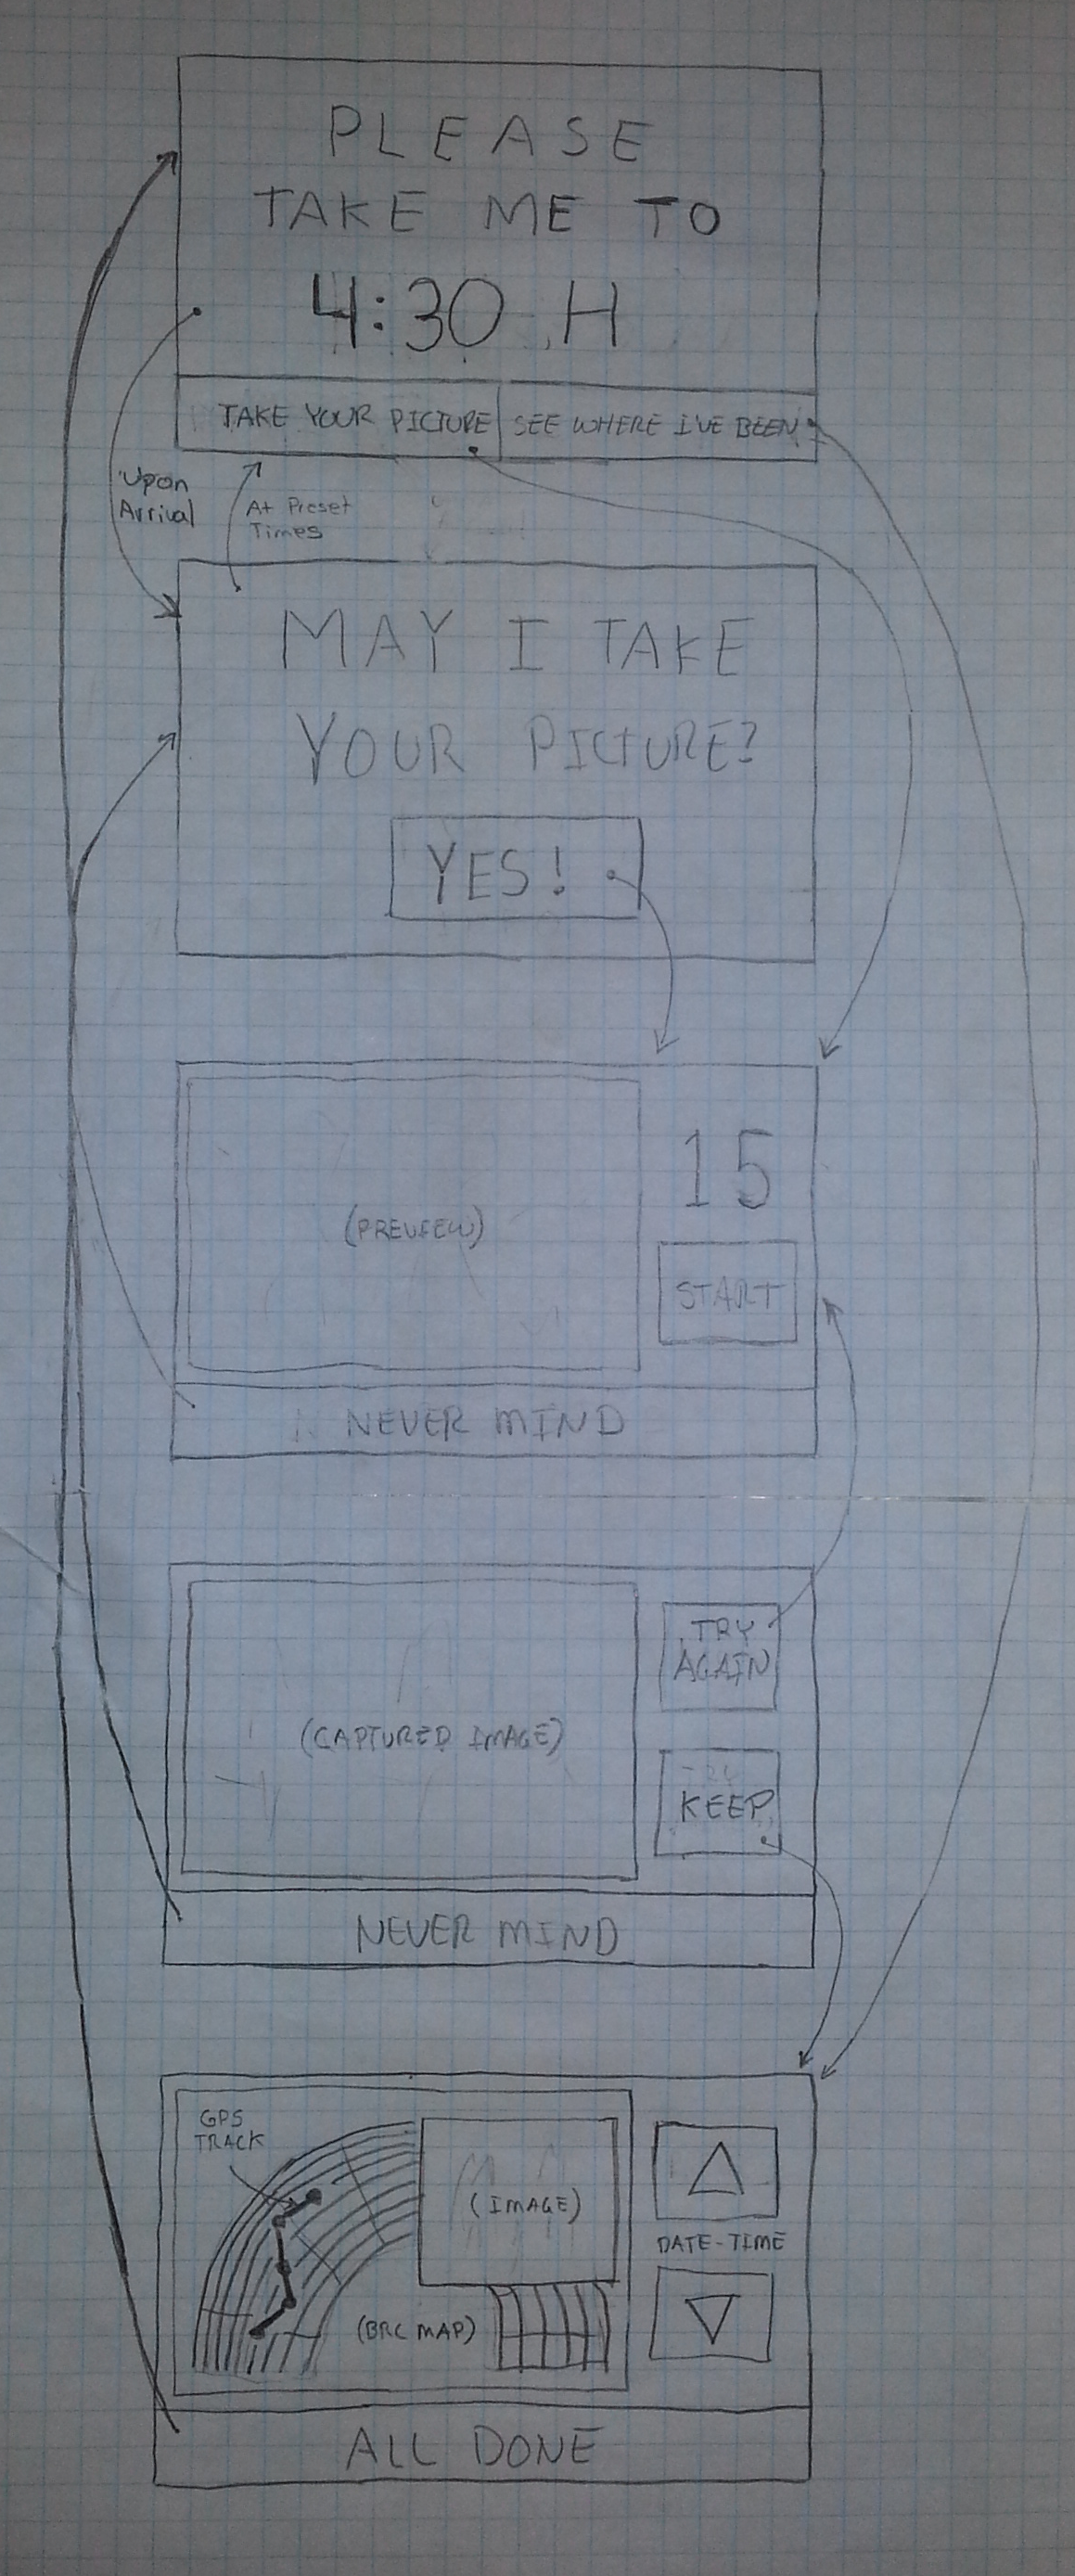 PLEASE
TAKE ME TO
4:30 H
TAKE YOUR PICTURE
SEE WHERE I'VE BEEN
Upon
Arrival
At Preset
Times
MAY I TAKE
YOUR PICTURE?
YES!
15
(PREVIEW)
START
NEVER MIND
TRY
AGAIN
(CAPTURED IMAGE)
KEEP
NEVER MIND
GPS
TRACK
(IMAGE)
DATE-TIME
(BRC MAP)
ALL DONE